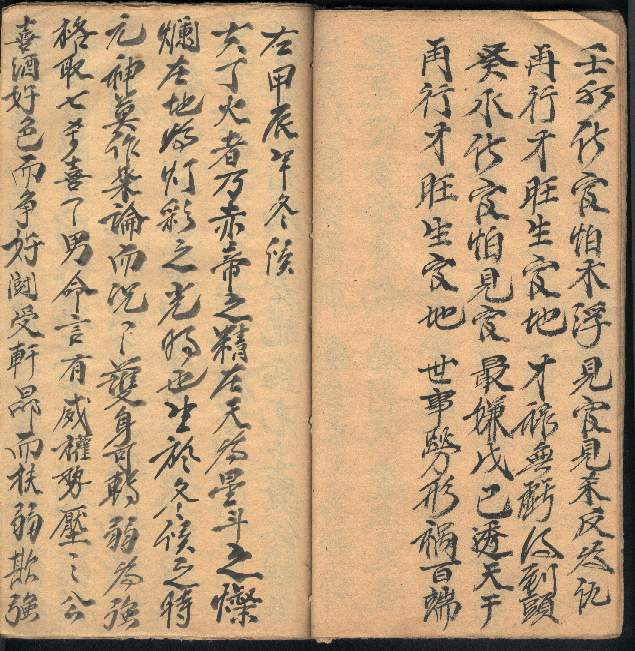 壬水化官怕木浮 見官見未反為仇
再行才旺生官地 才祿無虧得到頭
癸水化官怕見官 最嫌戊己透天干
再行才旺生官地 世事勞形禍百端
在甲辰年冬候
夫丁火者乃赤帝之精在天為星斗之燦
爛在地為灯彩之光明也生於冬候之時
元神莫作柴論而況丁護身可轉弱為強
格取七殺喜丁男命言有威權勢壓之公
喜酒好色而爭好鬪受軒昂而扶弱欺強